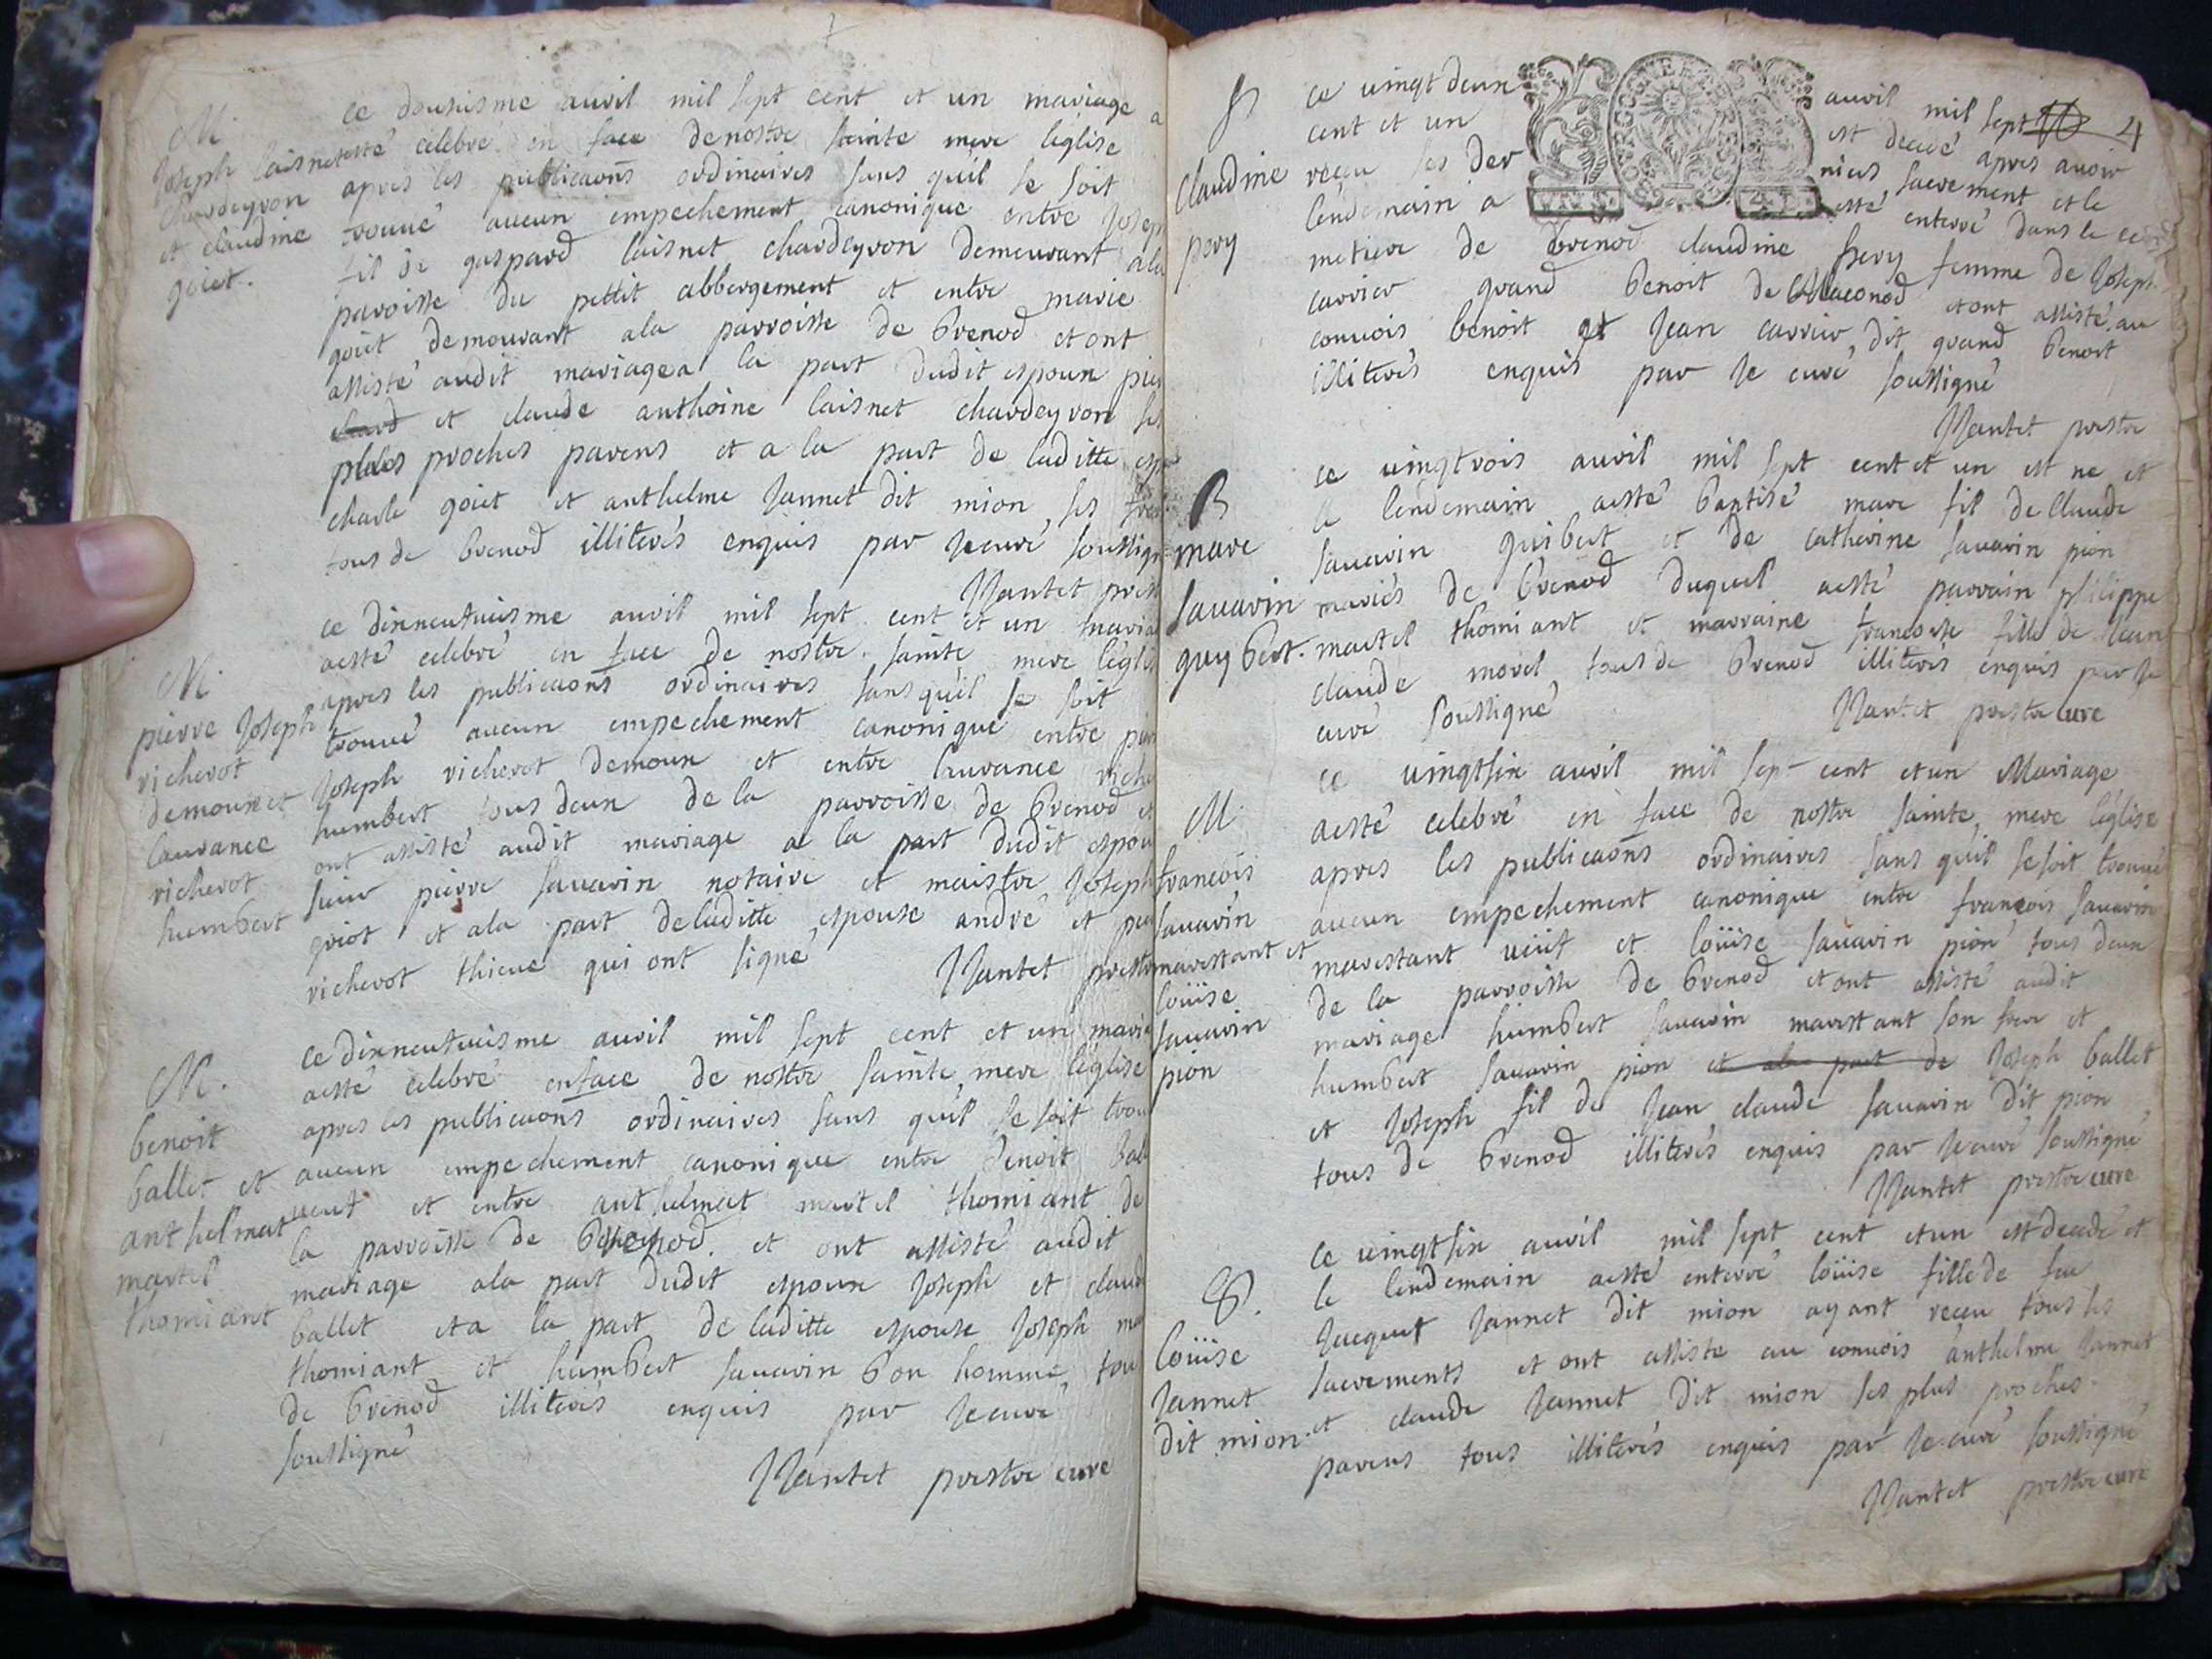 M.
Joseph laisnet
chardeyron
et claudine
goiet.
ce dousisme avvil mil sept cent et un mariage a
esté celebré en face de nostre sainte mere l'eglise
apres les publicaons ordinaires sans quil se soit
trouué aucun empechement canonique entre Joseph
fil de gaspard laisnet chardeyron demeurant a la
paroisse du pettit abbergement et entre marie
goiet demourant a la parroisse de brenod et ont
assisté audit mariage a la part dudit espoux
et claude anthoine laisnet chardeyron
plus proches parens et a la part de laditte
charle goiet et anthelme Jannet dit mion, ses
tous de brenod illiterés enquis par Je curé soussigné
Nantet prest
M.
pierre Joseph
richerot
demoux et
laurance
richerot
humbert
ce dixneufuiesme avvil mil sept cent et un mariage
aesté celebré en face de nostre sainte mere l'eglise
apres les publicaons ordinaires sans quil se soit
trouué aucun empechement canonique entre pierre
Joseph richerot demoux et entre laurance
humbert tous deux de la parroisse de brenod et
ont assisté audit mariage a la part dudit espoux
sieur pierre sauarin notaire et maistre Joseph
griot et a la part de laditte espouse andré et
richerot thieue qui ont signé
Nantet prestre
M.
benoit
ballet et
anthelmat
martel
thomiant
ce dixneufuiesme avvil mil sept cent et un mariage
aesté celebré en face de nostre sainte mere l'eglise
apres les publicaons ordinaires sans quil se soit
aucun empechement canonique entre benoit
ueuf et entre anthelmat martel thomiant de
la parroisse de brenod. et ont assisté audit
mariage a la part dudit espoux Joseph et claude
ballet et a la part de laditte espouse Joseph
thomiant et humbert sauarin bon homme,
de brenod illiterés enquis par Je curé
soussigné
Nantet prestre curé
4
S
claudine
pery
ce uingt deux avvil mil sept
cent et un est decedé apres auoir
reçeu ses derniers sacrement et le
lendemain a esté enterré dans le
metiere de brenod claudine pery femme de Joseph
carrier grand benoit de Maconod et ont assisté au
conuois benoit et Jean carrier, dit grand benoit
illiterés enquis par Je curé soussigné
Nantet prestre
B
marc
sauarin
guybert.
ce uingtrois avvil mil sept cent et un est ne et
le lendemain aesté baptisé marc fil de Claude
sauarin guibert et de catherine sauarin pion
mariés de brenod duquel aesté parrain philippe
martel thomiant et marraine francoise fille de Jean
claude morel tous de brenod illiterés enquis par Je
curé soussigné
Nantet prestre curé
M.
francois
sauarin
marestant et
loüise
sauarin
pion
ce uingtsix avvil mil sept cent et un Mariage
aesté celebré en face de nostre sainte mere l'eglise
apres les publicaons ordinaires sans quil se soit trouué
aucun empechement canonique entre françois sauarin
marestant uëuf et loüise sauarin pion tous deux
de la parroisse de brenod et ont assisté audit
mariage humbert sauarin marestant son frere et
humbert sauarin pion et a la part de Joseph ballet
et Joseph fil de Jean claude sauarin dit pion
tous de brenod illiterés enquis par Je curé soussigné
Nantet prestre curé
S.
loüise
Jannet
dit mion.
ce uingtsix avvil mil sept cent et un est decedé et
le lendemain aesté enterré loüise fille de feu
Jacquet Jannet dit mion ayant reçeu tous les
sacrements et ont assiste au conuois anthelme Jannet
et claude Jannet dit mion ses plus proches
parens tous illiterés enquis par Je curé soussigné
Nantet prestre curé